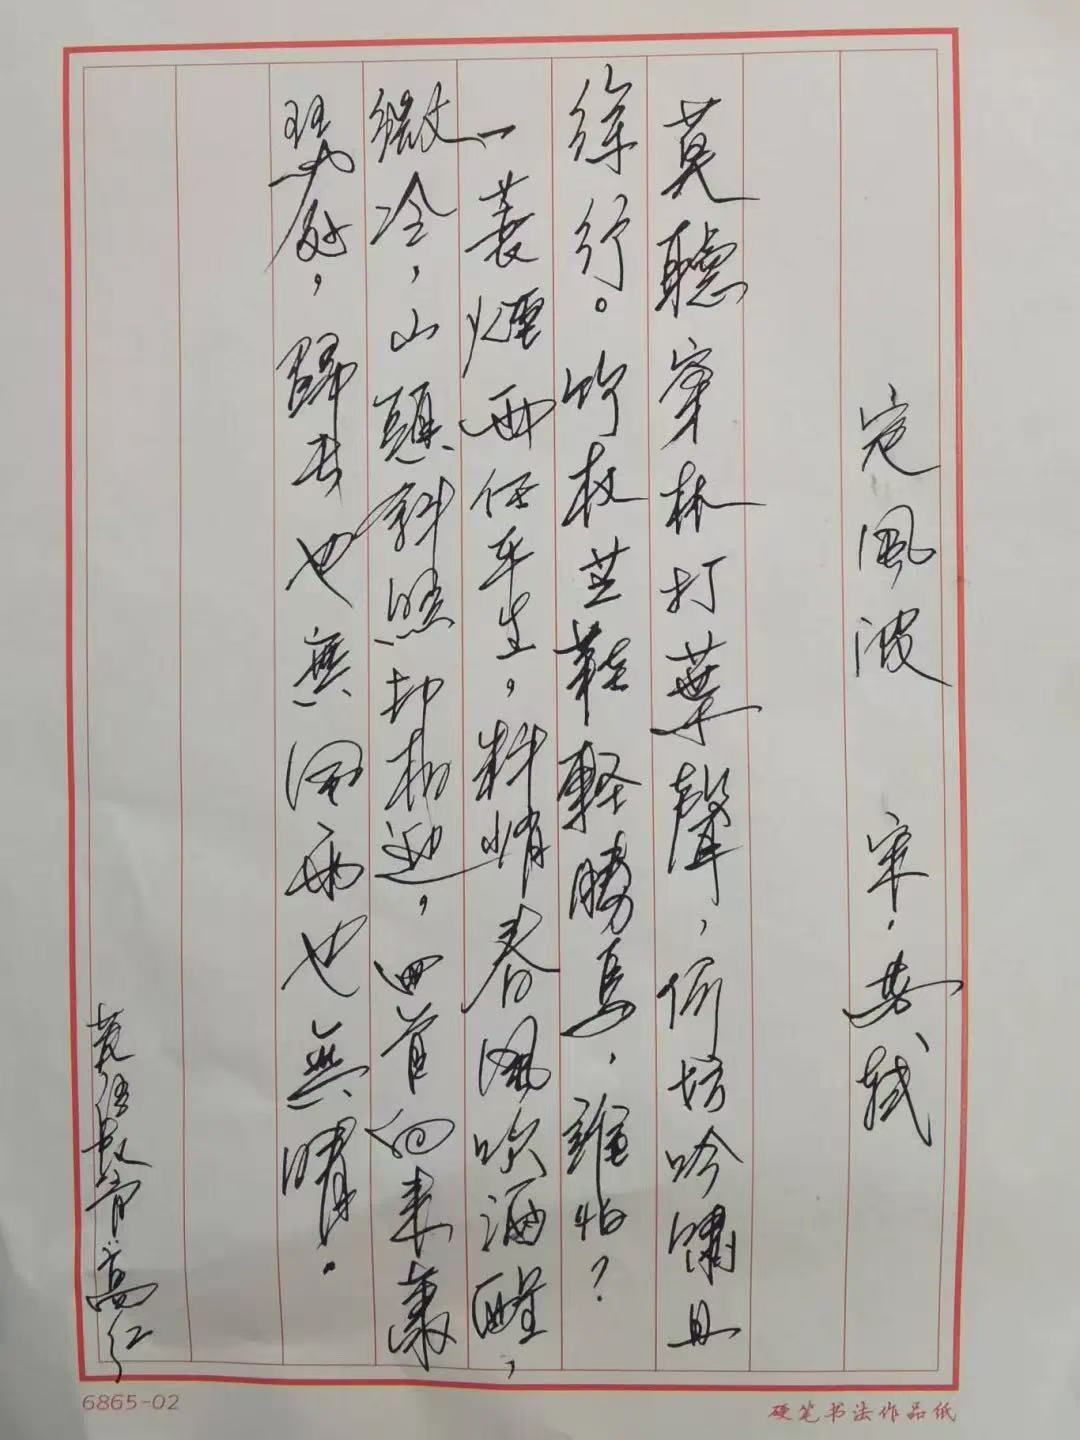 定風波 宋·蘇軾
莫聽穿林打葉聲，何妨吟嘯且
徐行。竹杖芒鞋輕勝馬，誰怕？
一蓑煙雨任平生，料峭春風吹酒醒，
微冷，山頭斜照却相迎，回首向來蕭
瑟处，歸去也無風雨也無晴。
6865-02
硬笔书法作品纸